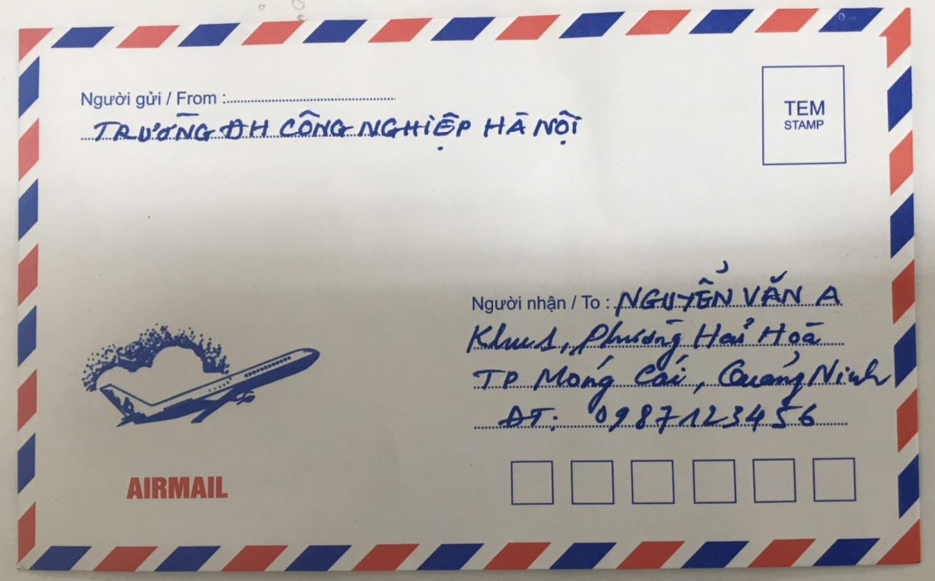 Người gửi / From :
TRƯỜNG ĐH CÔNG NGHIỆP HÀ NỘI
TEM
STAMP
Người nhận / To : NGUYỄN VĂN A
Khu 1, Phường Hải Hoà
TP Móng Cái, Quảng Ninh
ĐT: 0987123456
AIRMAIL